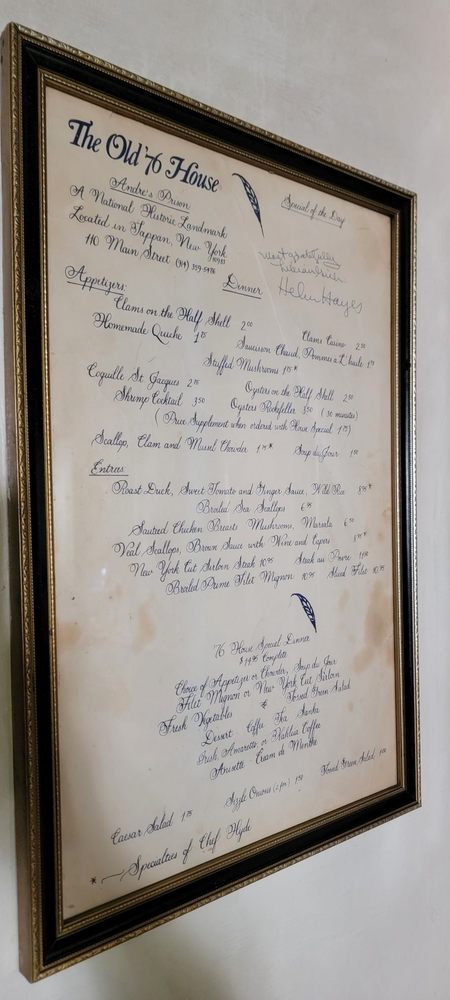 The Old '76 House
Andre's Prison
A National Historic Landmark
Located in Tappan, New York
10983
110 Main Street (914) 359-5476
Special of the Day
Most gratefully
Helen Hayes
Dinner
Appetizers:
Clams on the Half Shell 2.00 Clams Casino 2.50
Homemade Quiche 1.75 Saucisson Chaud, Pommes a L'huile 1.75
Stuffed Mushrooms 1.75*
Coquille St. Jacques 2.75 Oysters on the Half Shell 2.50
Shrimp Cocktail 3.50 Oysters Rockefeller 3.50 (30 minutes)
(Price Supplement when ordered with House Special 1.75)
Scallop, Clam and Mussel Chowder 1.75* Soup du Jour 1.50
Entrees:
Roast Duck, Sweet Tomato and Ginger Sauce, Wild Rice 8.95*
Broiled Sea Scallops 6.95
Sauteed Chicken Breasts Mushrooms, Marsala 6.50
Veal Scallops, Brown Sauce with Wine and Capers 8.95*
New York Cut Sirloin Steak 10.95 Steak au Poivre
Broiled Prime Filet Mignon 10.95 Sliced Filet 10.95
'76 House Special Dinner
$14.95 Complete
Choice of Appetizer or Chowder, Soup du Jour
Filet Mignon or New York Cut Sirloin
Fresh Vegetables & Tossed Green Salad
Dessert Coffee Tea Sanka
Irish, Amaretto or Kahlua Coffee
Anisette Cream de Menthe
Caesar Salad 1.75 Sizzle Onions 1.50 Tossed Green Salad 1.00
* Specialties of Chef Hyde